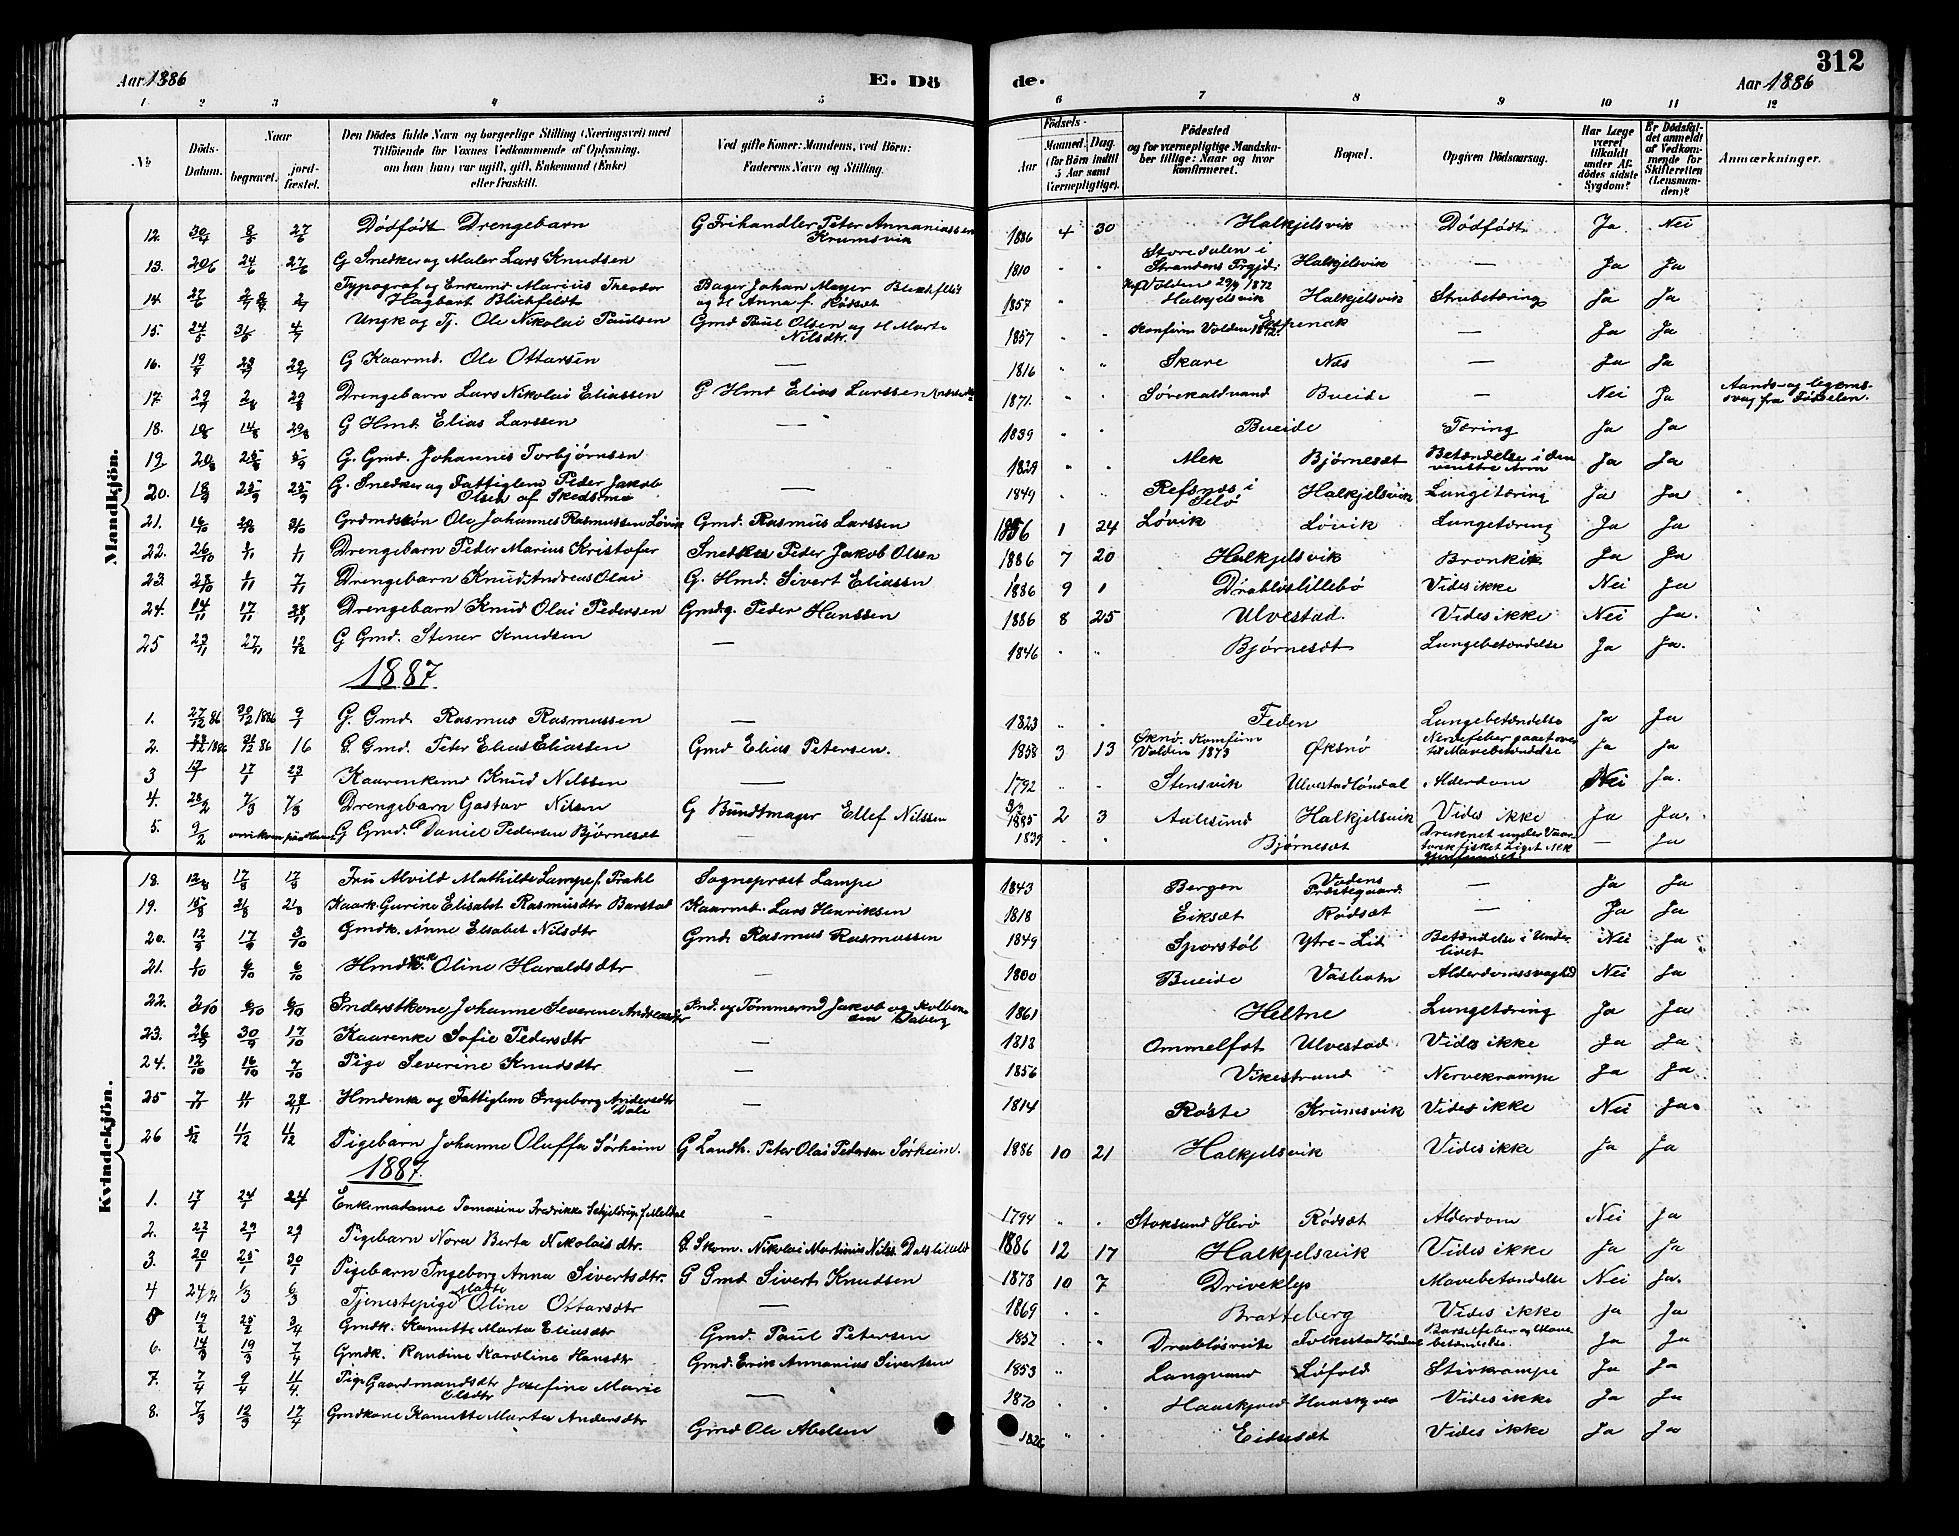 312
Aar 1886
E. Dö
de.
Aar 1886
1. 2 3 4 5 6 7 8 9 10 11 12
№
Döds-Datum.
Naar
begravet.
jordfæstet.
Den Dödes fulde Navn og borgerlige Stilling (Næringsvei) med
Tilföiende for Voxnes Vedkommende af Oplysning,
om han (hun) var ugift, gift, Enkemand (Enke)
eller fraskilt.
Ved gifte Koner: Mandens, ved Börn:
Faderens Navn og Stilling.
Födsels-
Aar
Maaned. Dag.
(for Börn indtil
5 Aar samt
Værnepligtige).
Födested
og for værnepligtige Mandskaber tillige: Naar og hvor
konfirmeret.
Bopæl.
Opgiven Dödsaarsag.
Har Læge
været
tilkaldt
under Afdödes sidste
Sygdom?
Er Dödsfaldet anmeldt
af Vedkommende for
Skifteretten
(Lensmanden)?
Anmærkninger.
Mandkjön.
12. 30/4 8/5 27/6 Dödfödt Drengebarn G Frihandler Peter Annaniassen Krumsvik 1886 4 30 Halkjelsvik Dödfödt Ja Nei
13. 20/6 24/6 27/6 G Snedker og Maler Lars Knudsen 1810 " " Storedalen i Strandens Prgjd: Halkjelsvik — Ja Ja
14. 27/6 2/7 Typograf og Enkemd Marius Theodor Hagbart Blichfeldt Bager Johan Meyer og H Anna f. Rödset 1857 " Kf Volden 29/9 1872 Halkjelsvik Halkjelsvik Strubetæring Ja Ja
15. 24/5 31/5 4/7 Ungk og Tj. Ole Nikolai Paulsen Gmd Paul Olsen og H Marte Nilsdtr. 1857 " " Konfirm Volden Espenak — Ja Ja
16. 19/7 29/7 G Kaarmd. Ole Ottarsen — 1816 " " Skare Næs — Ja Ja
17. 29/7 2/8 29/8 Drengebarn Lars Nikolai Eliassen G Hmd Elias Larssen 1871. " " Sörekaldvand Bueide — Nei Ja Aands- og legemssvag fra Födselen.
18. 10/8 14/8 29/8 G Hmd. Elias Larssen — 1839 " " Bueide Tæring Ja Ja
19. 20/8 25/8 5/9 G. Gmd. Johannis Torbjørnsen — 1829 " " Mek Bjørneset Betændelse i den venstre Arm Ja Ja
20. 18/9 25/9 25/9 G. Snedker og Fattiglem Peder Jakob Olsen af Skedsmo — 1849 " " Refsnæs i Selö Halkjelsvik Lungetæring Ja Ja
21. 16/10 Grdmdssön Ole Johannes Rasmussen Lövik Gmd. Rasmus Larssen 1 24 Lövik Lövik Lungetæring Ja Ja
22. 26/10 1/11 1/11 Drengebarn Peder Marius Kristofer Snedker Peder Jakob Olsen 1886 7 20 Halkjelsvik Bronkit Ja Ja
23. 28/10 1/11 7/11 Drengebarn Knud Andreas Olai G. Hmd. Sivert Eliassen 1886 9 1 Drabløslillebø Vides ikke Nei Ja
24. 14/11 17/11 28/11 Drengebarn Knud Olai Pedersen Gmdg. Peder Hanssen 1886 8 25 Ulvestad. Vides ikke Nei Ja.
25 23/11 27/11 12/12 G Gmd. Stener Knudsen — 1846 " " Bjørneset Lungebetændelse Ja Ja.
1887
1. 27/12 86 30/12 1886 9/1 G. Gmd. Rasmus Rasmussen — 1823 " " Feden Lungebetændelse Ja Ja
2. 31/12 86 16 G. Gmd. Peter Elias Eliassen Gmd Elias Petersen. 1858 3 13 Øksnö. Konfirm Volden 1873 Øksnø Nervefeber gaaet over til Mavebetændelse Ja Ja
3 12/1 17/1 23/1 Kaarenkemd Knud Nilssen — 1792 " " Stensvik Ulvestadlöndal Alderdom Nei Ja.
4. 28/2 7/3 7/3 Drengebarn Gustav Nilsen G Bundtmager Ellef Nilssen 1885 2 3 Aalesund Halkjelsvik Vides ikke Ja Ja.
5. 9/2 G Gmd. Daniel Pedersen Bjørneset — 1839 " " Bjørneset Druknet under Vaartorskfisket Liget ikke gjenfundet — Ja
Kvindekjön.
18. 12/8 17/8 17/8 Fru Alvild Mathilde Lampe f. Prahl Sogneprest Lampe 1843 Bergen Voldens Præstegaard — Ja Ja
19. 15/8 21/8 21/8 Kaark. Gurine Elisabet Rasmusdtr Barstad Kaarmd. Lars Henriksen 1818 Eikset Rødset — Ja Ja
20. 12/9 17/9 3/10 Gmdk. Anne Elsabet Nilsdtr Gmd. Rasmus Rasmussen 1849 Sporstöl Ytre-Lid Betændelse i Underlivet Nei Ja
21. 1/10 6/10 6/10 Hmdenk. Oline Haraldsdtr — 1800 Bueide Vasbotn Alderdomssvaghed Nei Ja
22. 2/10 6/10 6/10 Inderstkone Johanne Severine Andreasdtr Ind. og Tömmermd Jakob 1861 Heltne Lungetæring Ja Ja
23. 26/9 30/9 17/10 Kaarenke Sofie Pedersdtr — 1813 Ommelfot Ulvestad Vides ikke Ja Ja
24. 12/10 16/10 7/10 Pige Severine Knudsdtr — 1856 Vikestrand Nervekrampe Ja Ja
25 7/11 11/11 28/11 Hmdenk og Fattiglem Ingeborg Andersdtr Dale — 1814 Röste Krumsvik Vides ikke Nei Ja.
26 5/12 11/12 11/12 Pigebarn Johanne Oluffa Sörheim G Landh. Peter Olai Pedersen Sörheim. 1886 10 21 Halkjelsvik Vides ikke Ja Ja
1887.
1. 17/1 24/1 24/1 Enkemadame Tomasine Fredrikke — 1794 " " Stoksund Herö Rödset Alderdom Nei Ja
2. 22/1 29/1 29/1 Pigebarn Nora Berta Nikolaisdtr. G. Skom. Nikolai Martinus Nils. 1886 12 17 Halkjelsvik Vides ikke Ja Ja
3. 20/1 25/1 30/1 Pigebarn Ingeborg Anna Sivertsdtr. G Gmd Sivert Knudsen 1878 10 7 Driveklep Mavebetændelse Nei Ja.
4 24/2 1/3 6/3 Tjenestepige Marte Oline Ottarsdtr — 1869 " " Bratteberg Vides ikke Ja Ja
5 19/2 25/2 3/4 Gmdk. Kanutte Marta Eliasdtr Gmd. Paul Petersen 1852 " " Drabløsveite Folkestadlöndene Barselfeber og Mavebetændelse. Ja Ja
6. 14/3 19/3 7/4 Gmdk. Randine Karoline Hansdtr Gmd. Erik Annanias Sivertsen 1853 " Langvand Løfold Stivkrampe Ja Ja
7. 7/4 9/4 11/4. Pige Gaardmandsdtr Josefine Marie Olsdtr — 1870 " " Haaskjved Vides ikke Ja Ja
8. 7/3 12/3 17/4 Gmdkone Kanutte Marta Andersdtr Gmd Ole Abelsen 1826 " " Eidset Vides ikke Ja Ja